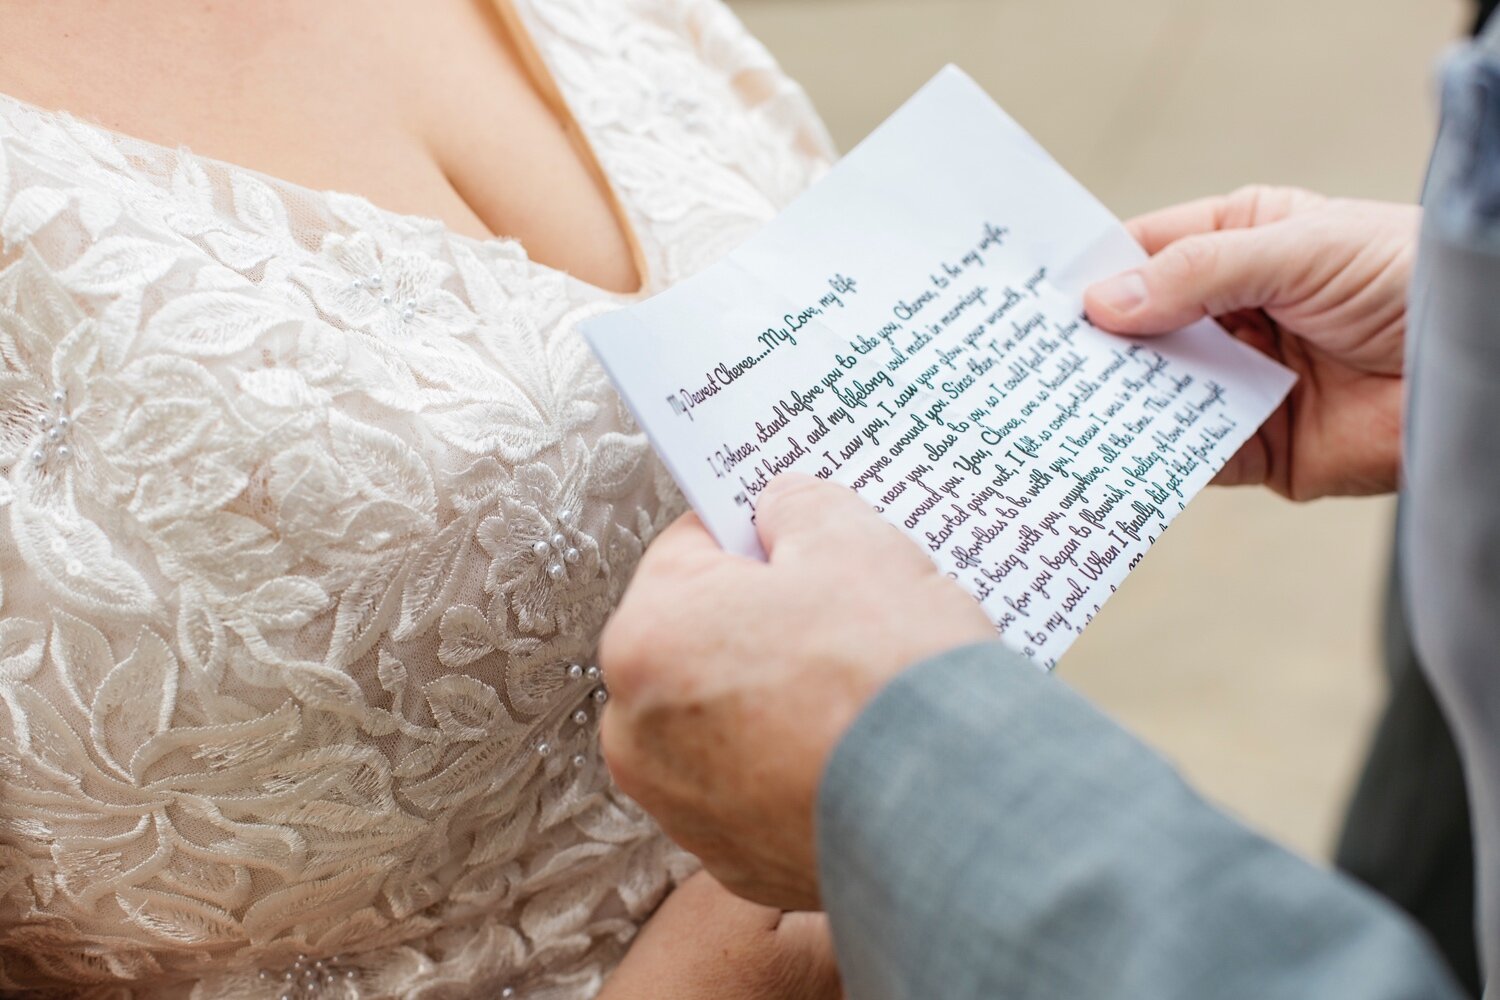 My Dearest Cheree....My Love, my life
I, Johnee, stand before you to take you, Cheree, to be my wife,
my best friend, and my lifelong soul mate in marriage.
I saw you, I saw your glow, your warmth, your
everyone around you. Since then I've always
near you, close to you, so I could feel the glow
around you. You, Cheree, are so beautiful.
started going out, I felt so comfortable around you,
effortless to be with you, I knew I was in the perfect
being with you, anywhere, all the time. This is when
for you began to flourish, a feeling of love that brought
to my soul. When I finally did get that first kiss, I